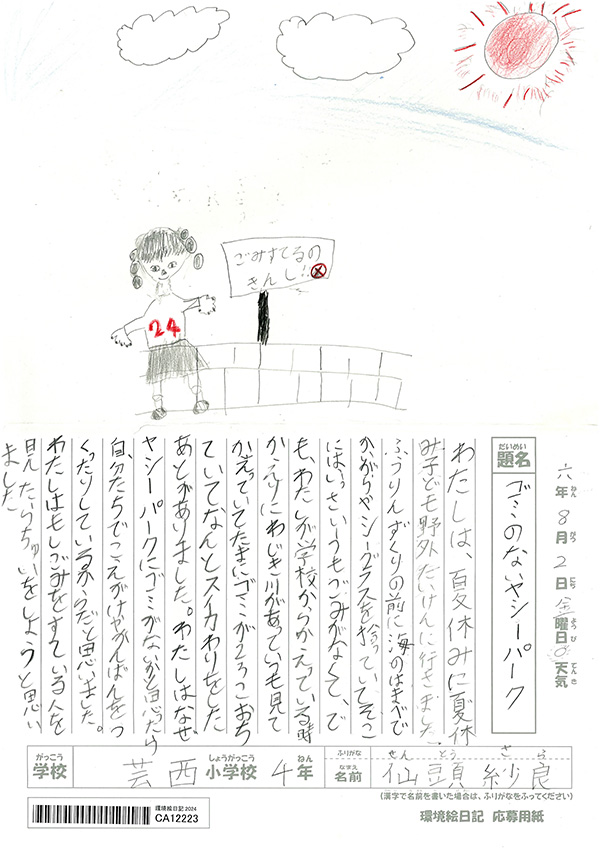 ごみすてるの
きんし!!
24
六年8月2日金曜日天気
ねん がつ にち ようび てんき
だいめい
題名
ゴミのないヤシーパーク
わたしは、夏休みに夏休
み子ども野外たいけんに行きました。
ふうりんずくりの前に海のはまべで
かいがらやシーグラスを拾っていてそこ
にはいっさいうもごみがなくて、で
も、わたしが学校からかえっている時
かえりにわじき川があっていつも見て
かえっていてたまにゴミが2、3こおち
ていてなんとスイカわりをした
あとがありました。わたしはなぜ
ヤシーパークにゴミがないかと思ったら
自分たちでこえがけやかんばんをつ
くったりしているからだと思いました。
わたしはもしごみをすている人を
見たらちゅういをしようと思い
ました
がっこう
学校
芸西
しょうがっこう
小学校
4
ねん
年
ふりがな
なまえ
名前
せん とう さ ら
仙頭紗良
(漢字で名前を書いた場合は、ふりがなをふってください)
環境絵日記 2024
CA12223
環境絵日記 応募用紙